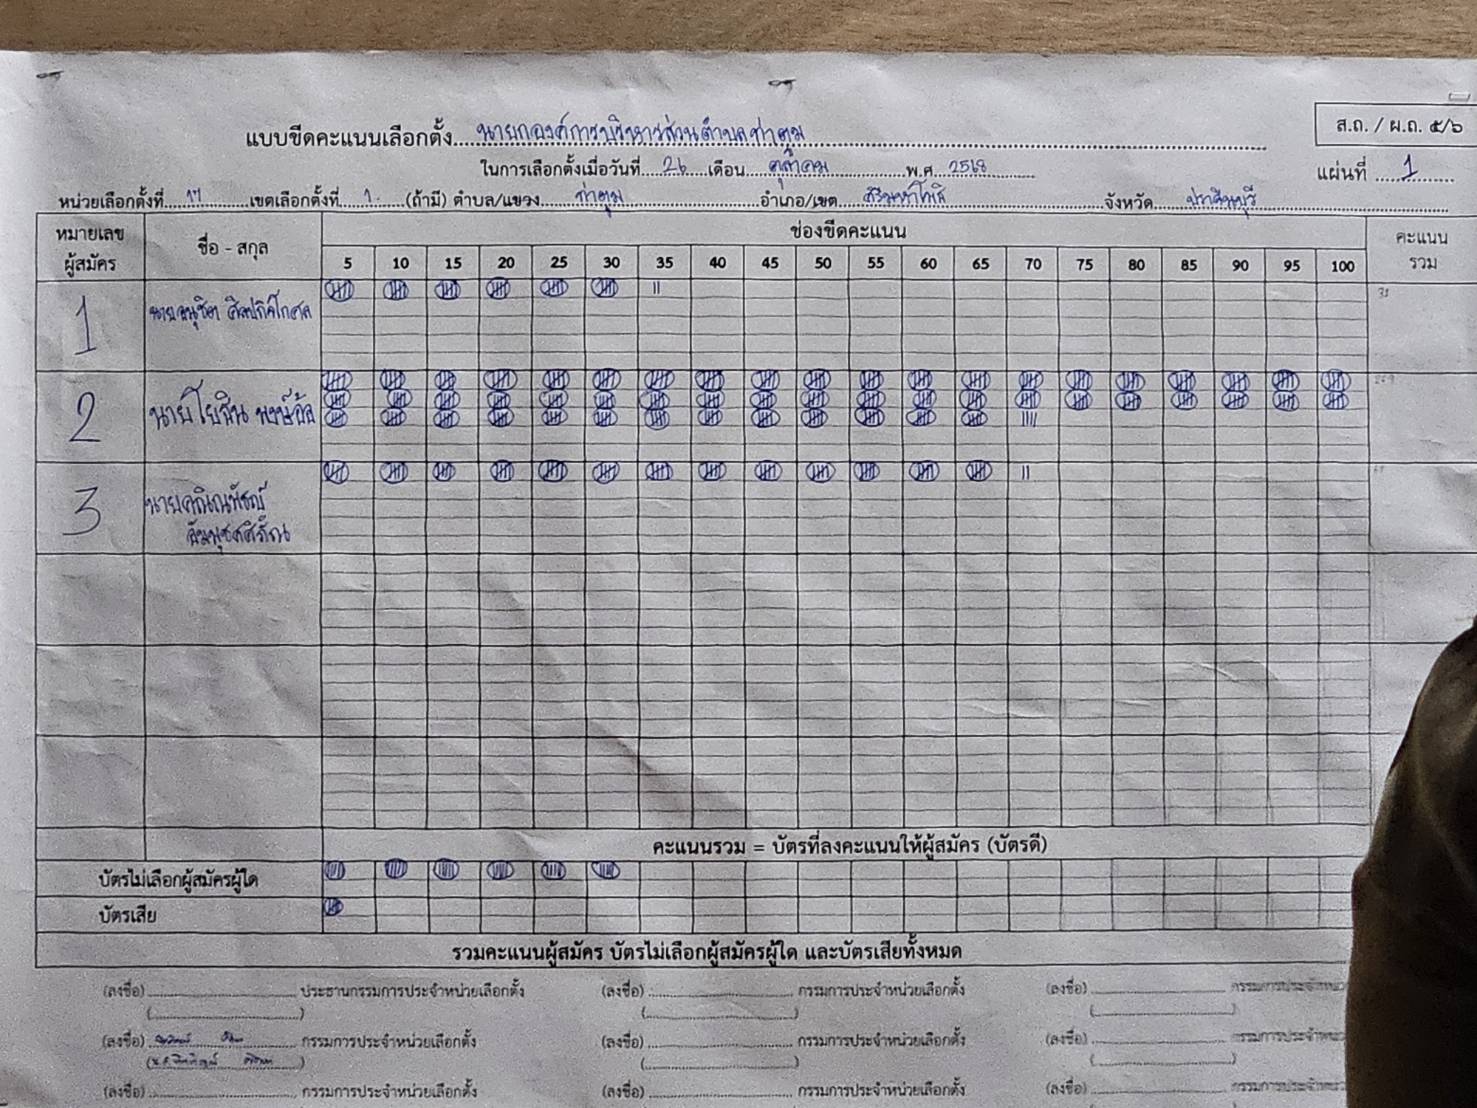 ส.ถ. / ผ.ถ. ๕/๖
แบบขีดคะแนนเลือกตั้ง นายกองค์การบริหารส่วนตำบลท่าตูม
ในการเลือกตั้งเมื่อวันที่ 26 เดือน ตุลาคม พ.ศ. 2568
แผ่นที่ 1
หน่วยเลือกตั้งที่ 17 เขตเลือกตั้งที่ 1 (ถ้ามี) ตำบล/แขวง ท่าตูม อำเภอ/เขต ศรีมหาโพธิ จังหวัด ปราจีนบุรี
หมายเลขผู้สมัคร ชื่อ - สกุล ช่องขีดคะแนน คะแนนรวม
5 10 15 20 25 30 35 40 45 50 55 60 65 70 75 80 85 90 95 100
1 นาย
2 นายโยธิน
3 นาย
คะแนนรวม = บัตรที่ลงคะแนนให้ผู้สมัคร (บัตรดี)
บัตรไม่เลือกผู้สมัครผู้ใด
บัตรเสีย
รวมคะแนนผู้สมัคร บัตรไม่เลือกผู้สมัครผู้ใด และบัตรเสียทั้งหมด
(ลงชื่อ) ประธานกรรมการประจำหน่วยเลือกตั้ง (ลงชื่อ) กรรมการประจำหน่วยเลือกตั้ง (ลงชื่อ) กรรมการประจำหน่ว
(ลงชื่อ) กรรมการประจำหน่วยเลือกตั้ง (ลงชื่อ) กรรมการประจำหน่วยเลือกตั้ง (ลงชื่อ) กรรมการประจำหน่ว
(ลงชื่อ) กรรมการประจำหน่วยเลือกตั้ง (ลงชื่อ) กรรมการประจำหน่วยเลือกตั้ง (ลงชื่อ) กรรมการประจำหน่ว